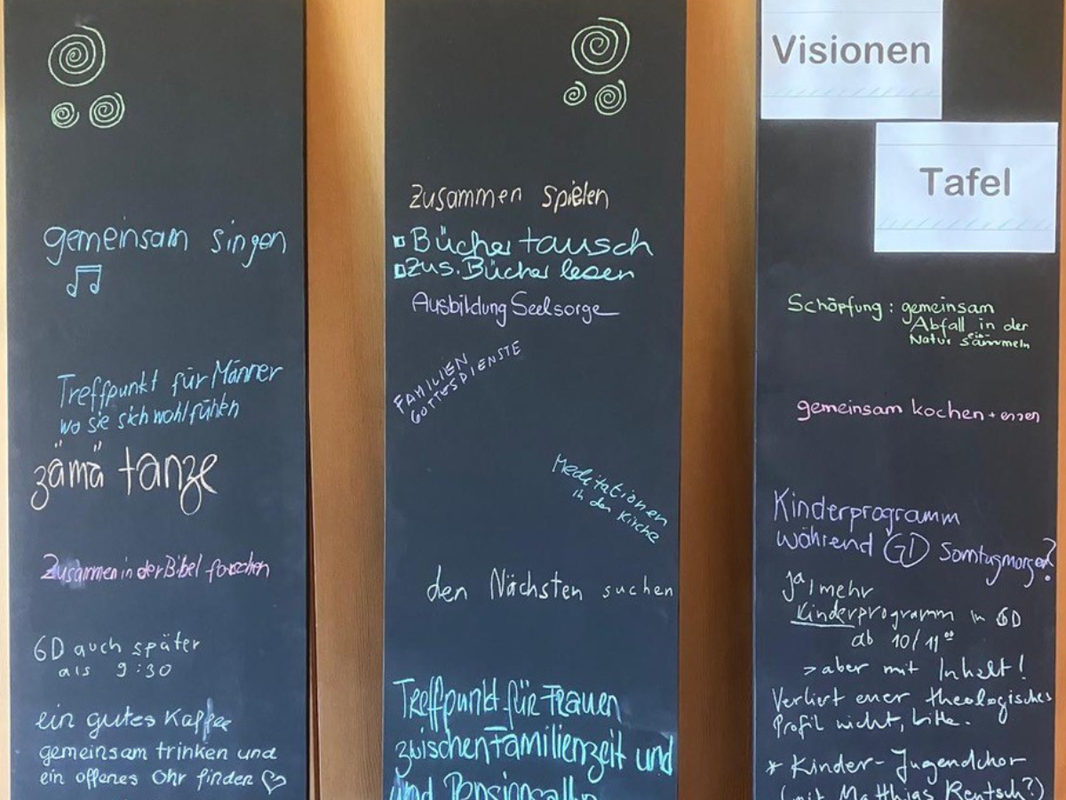 gemeinsam singen
Treffpunkt für Männer
wo sie sich wohlfühlen
zämä tanze
Zusammen in der Bibel forschen
GD auch später
als 9:30
ein gutes Kaffee
gemeinsam trinken und
ein offenes Ohr finden
Zusammen spielen
Büchertausch
Zus. Bücher lesen
Ausbildung Seelsorge
FAMILIEN
GOTTESDIENSTE
Meditationen
in der Kirche
den Nächsten suchen
Treffpunkt für Frauen
zwischen Familienzeit und
und
Visionen
Tafel
Schöpfung: gemeinsam
Abfall in der
Natur einsammeln
gemeinsam kochen + essen
Kinderprogramm
während GD Sonntagmorgen?
ja, mehr
Kinderprogramm in GD
ab 10/11⁰⁰
> aber mit Inhalt!
Verliert euer theologisches
Profil nicht, bitte.
* Kinder-Jugendchor
(mit Matthias Rentsch?)